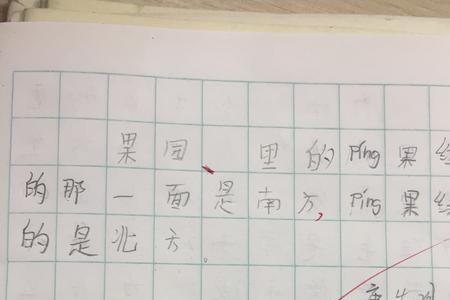 果园、里的ping果
的那一面是南方,ping果
的是北方。